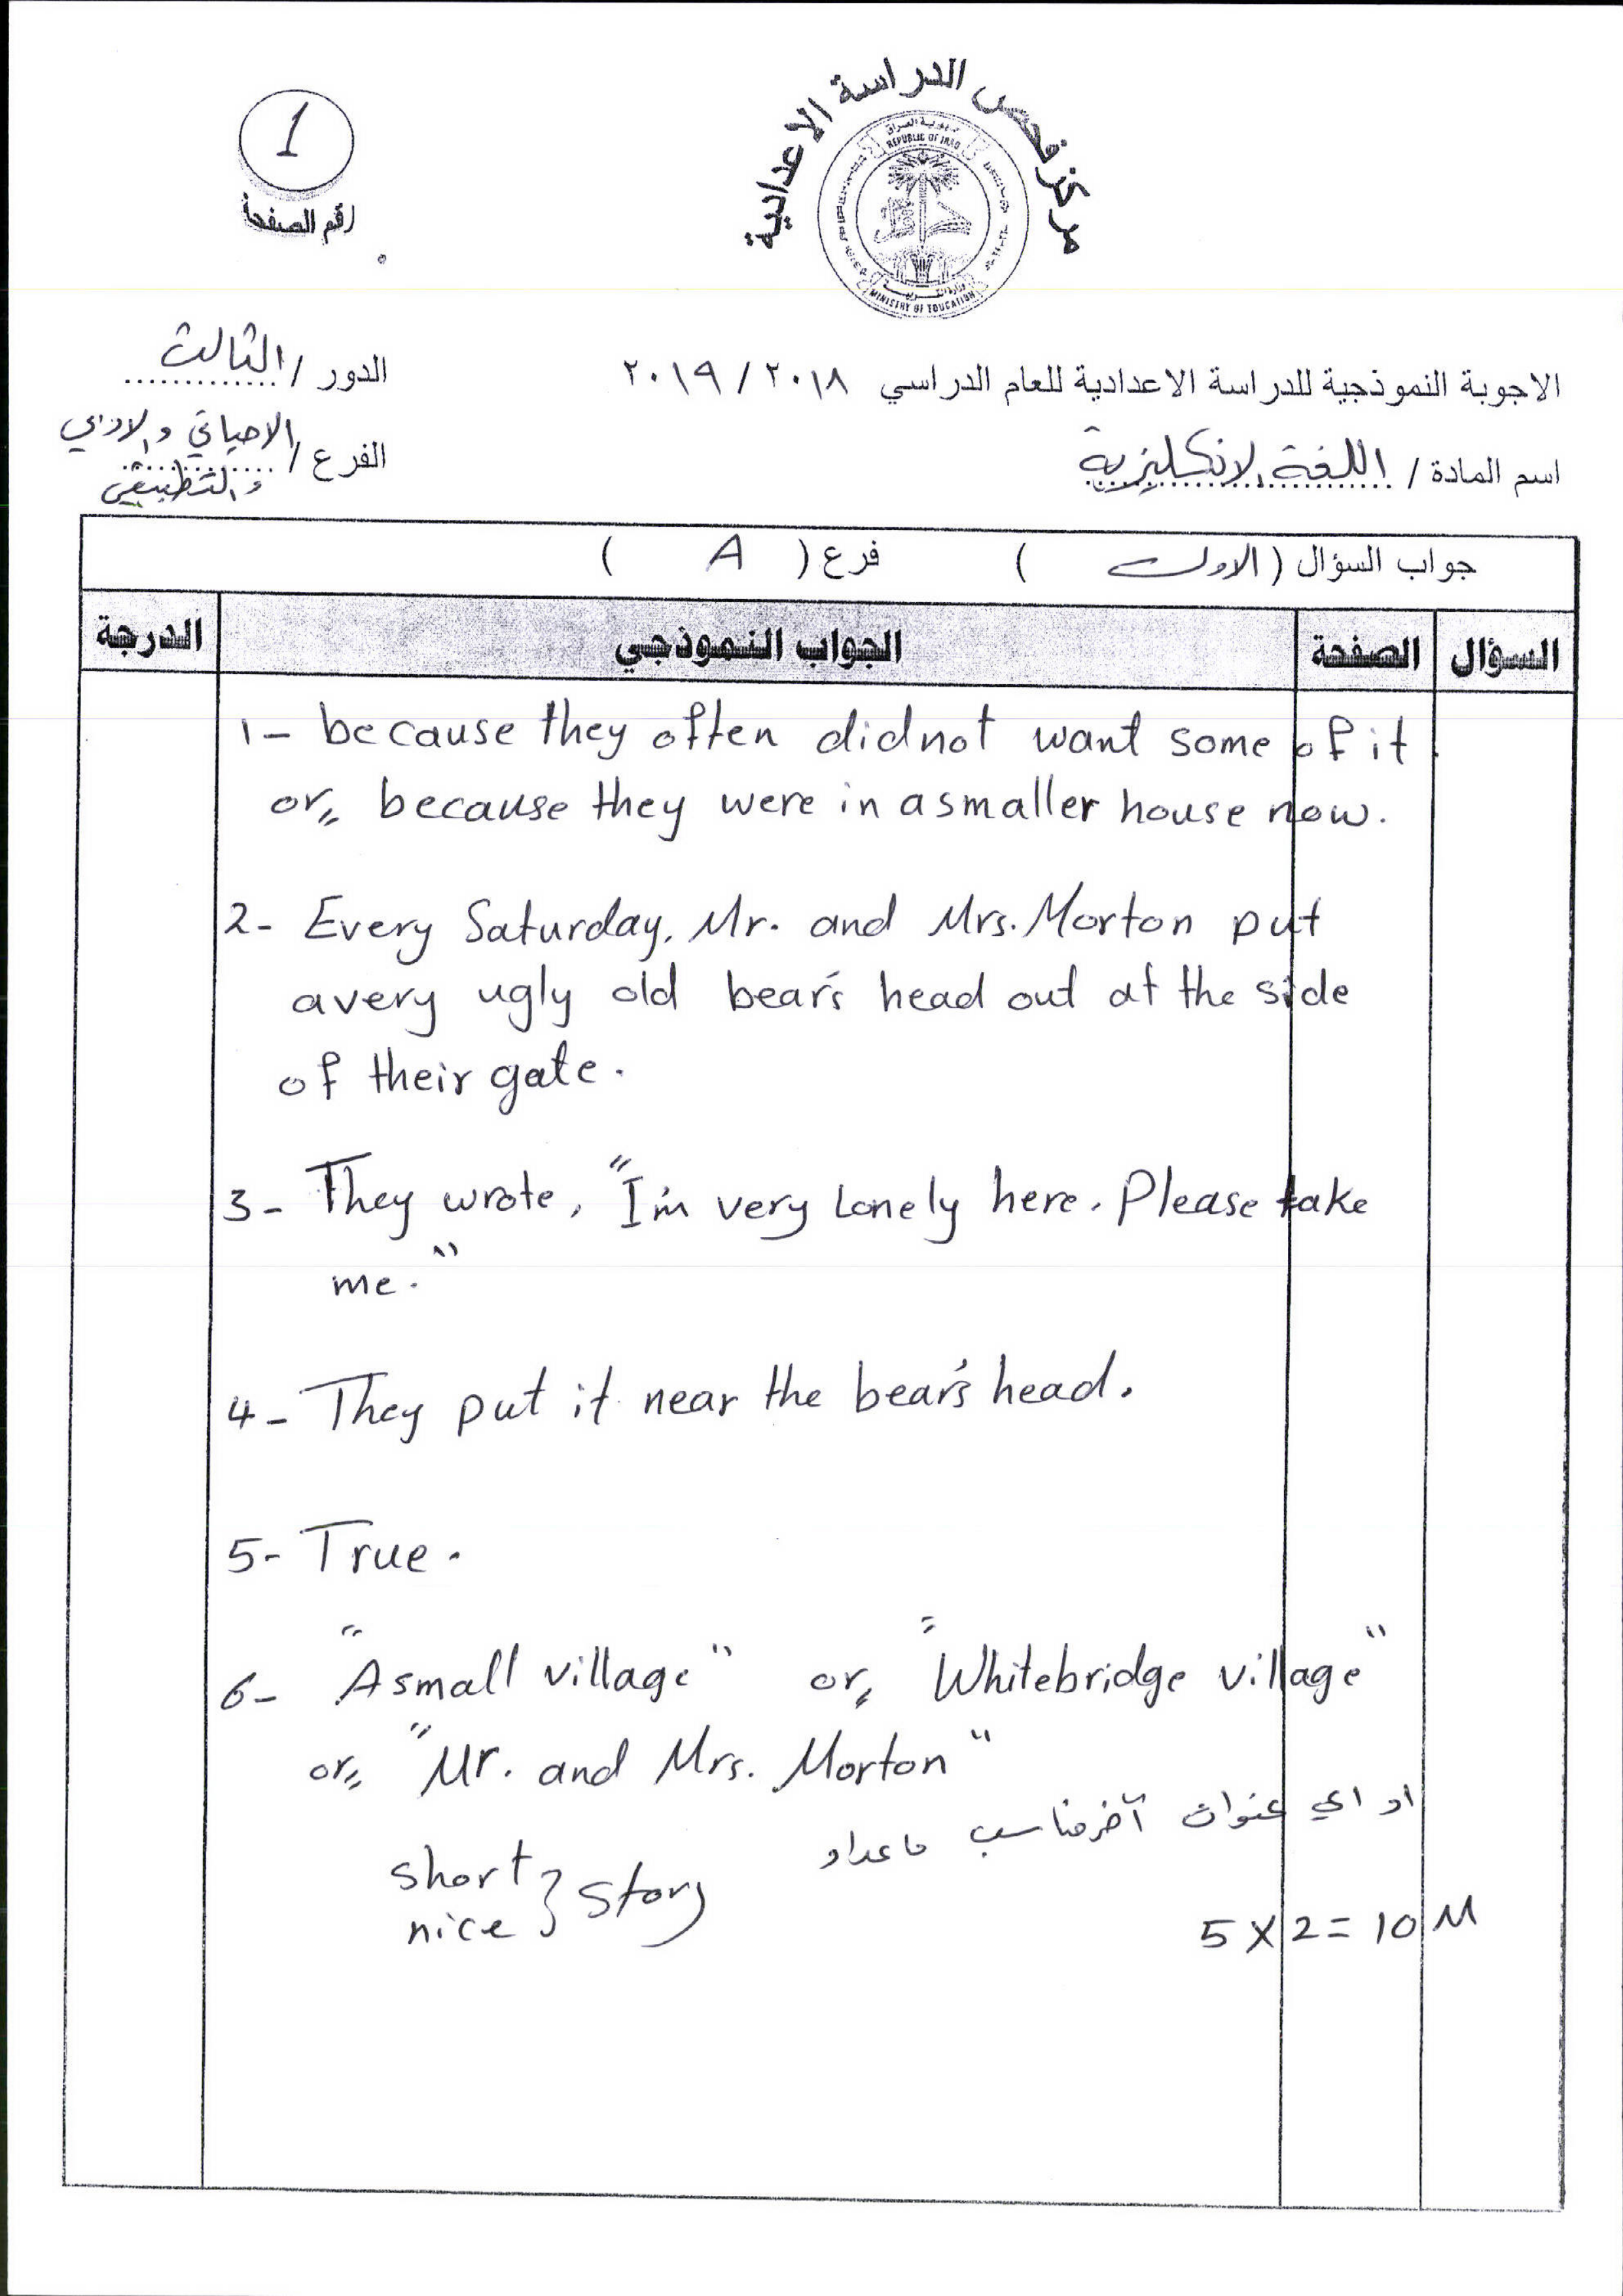 مركز فحص الدراسة الاعدادية
جمهورية العراق
REPUBLIC OF IRAQ
MINISTRY OF EDUCATION
1
رقم الصفحة
الاجوبة النموذجية للدراسة الاعدادية للعام الدراسي ٢٠١٨ / ٢٠١٩
الدور / الثالث
اسم المادة / اللغة الانكليزية
الفرع / الاحيائي والادبي
والتطبيقي
جواب السؤال ( الاول ) فرع ( A )
السؤال الصفحة الجواب النموذجي الدرجة
1- because they often didnot want some of it.
or,, because they were in a smaller house now.
2- Every Saturday, Mr. and Mrs. Morton put
a very ugly old bear's head out at the side
of their gate.
3- They wrote, "I'm very lonely here. Please take
me."
4- They put it near the bear's head.
5- True.
6- "A small village" or,, "Whitebridge village"
or,, "Mr. and Mrs. Morton"
او اي عنوان آخر مناسب ماعدا
short } story
nice
5 X 2 = 10 M